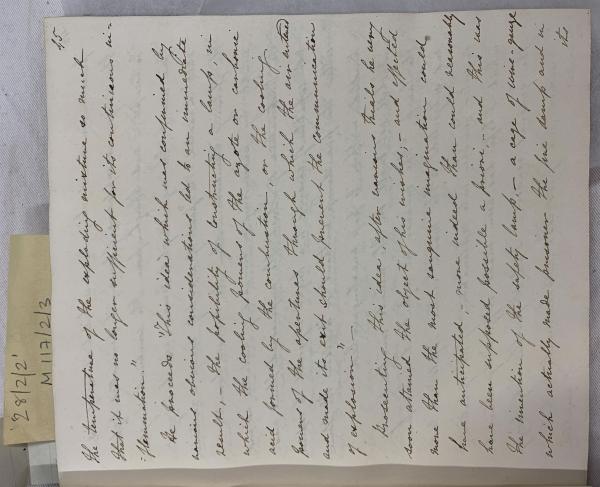 45
the temperature of the exploding mixture so much
that it was no longer sufficient for its continuous in-
-flammation."
He proceeds "This idea which was confirmed by
various obvious considerations led to an immediate
result – the possibility of constructing a lamp, in
which the cooling powers of the azote or carbonic
acid formed by the combustion, or the cooling
powers of the apertures through which the air entered
and made its exit should prevent the communication
of explosion" –
Prosecuting this idea, after various trials he very
soon attained the object of his wishes; – and effected
more than the most sanguine imagination could
have anticipated; more indeed than could reasonably
have been supposed possible a priori, – and this was
the invention of the safety lamp, – a cage of wire-gauze
which actually made prisoner the fire lamp and in
its
'28/2/2'
M117/2/3